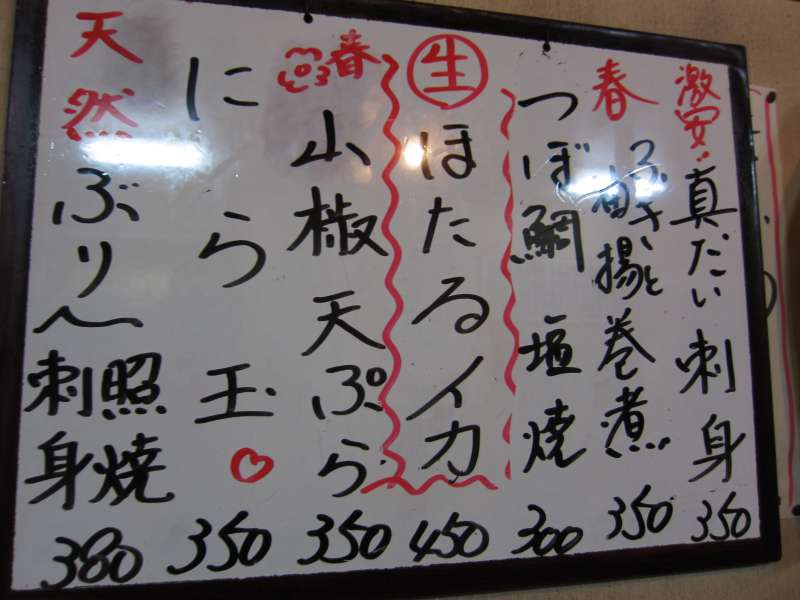 激安! 真だい刺身 350
春 ふきと 揚巻煮 350
つぼ鯛 塩焼 300
生 ほたるイカ 450
春 山椒天ぷら 350
にら玉 350
天然ぶり 照焼 刺身 380